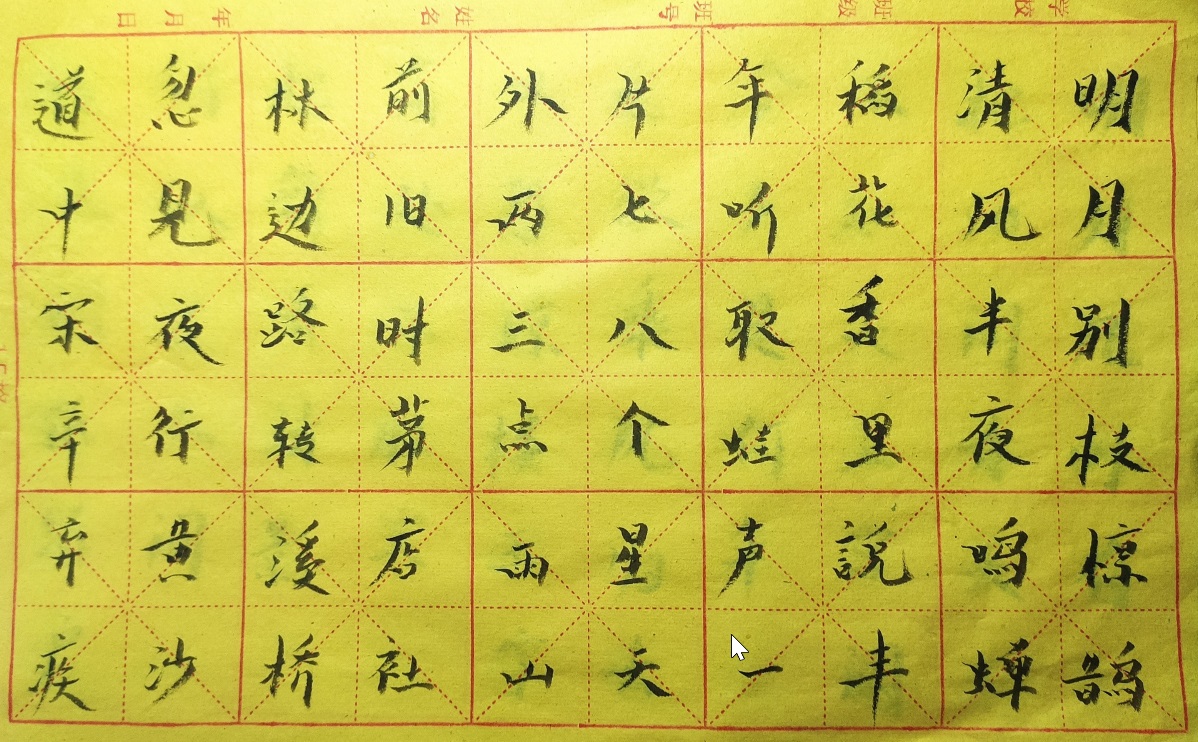 学校 班级 班号 姓名 年 月 日
明月别枝惊鹊
清风半夜鸣蝉
稻花香里説丰
年听取蛙声一
片七八个星天
外两三点雨山
前旧时茅店社
林边路转溪桥
忽見夜行黄沙
道中宋辛弃疾